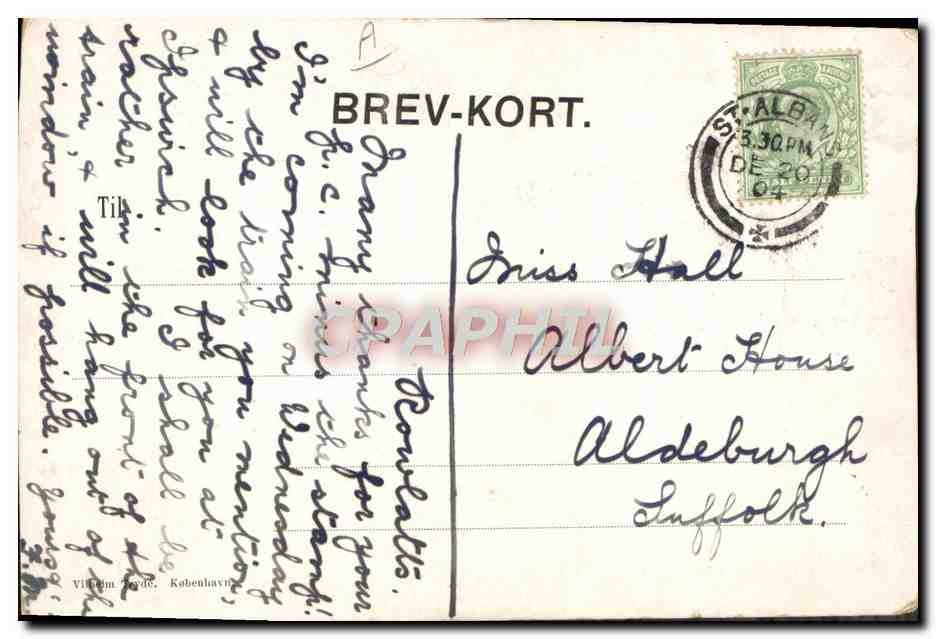 A
BREV-KORT.
ST. ALBANS
3.30 PM
DE 20
04
Til
Rowlatts.
Many thanks for your
p.c. minus the stamp!
I'm coming on Wednesday
by the train you mention,
& will look for you at
Ipswich. I shall be
rather in the front of the
train, & will hang out of the
window if possible. Yours,
Miss Hall
Albert House
Aldeburgh
Suffolk.
CPAPHIL
Vilhelm Tryde. København.